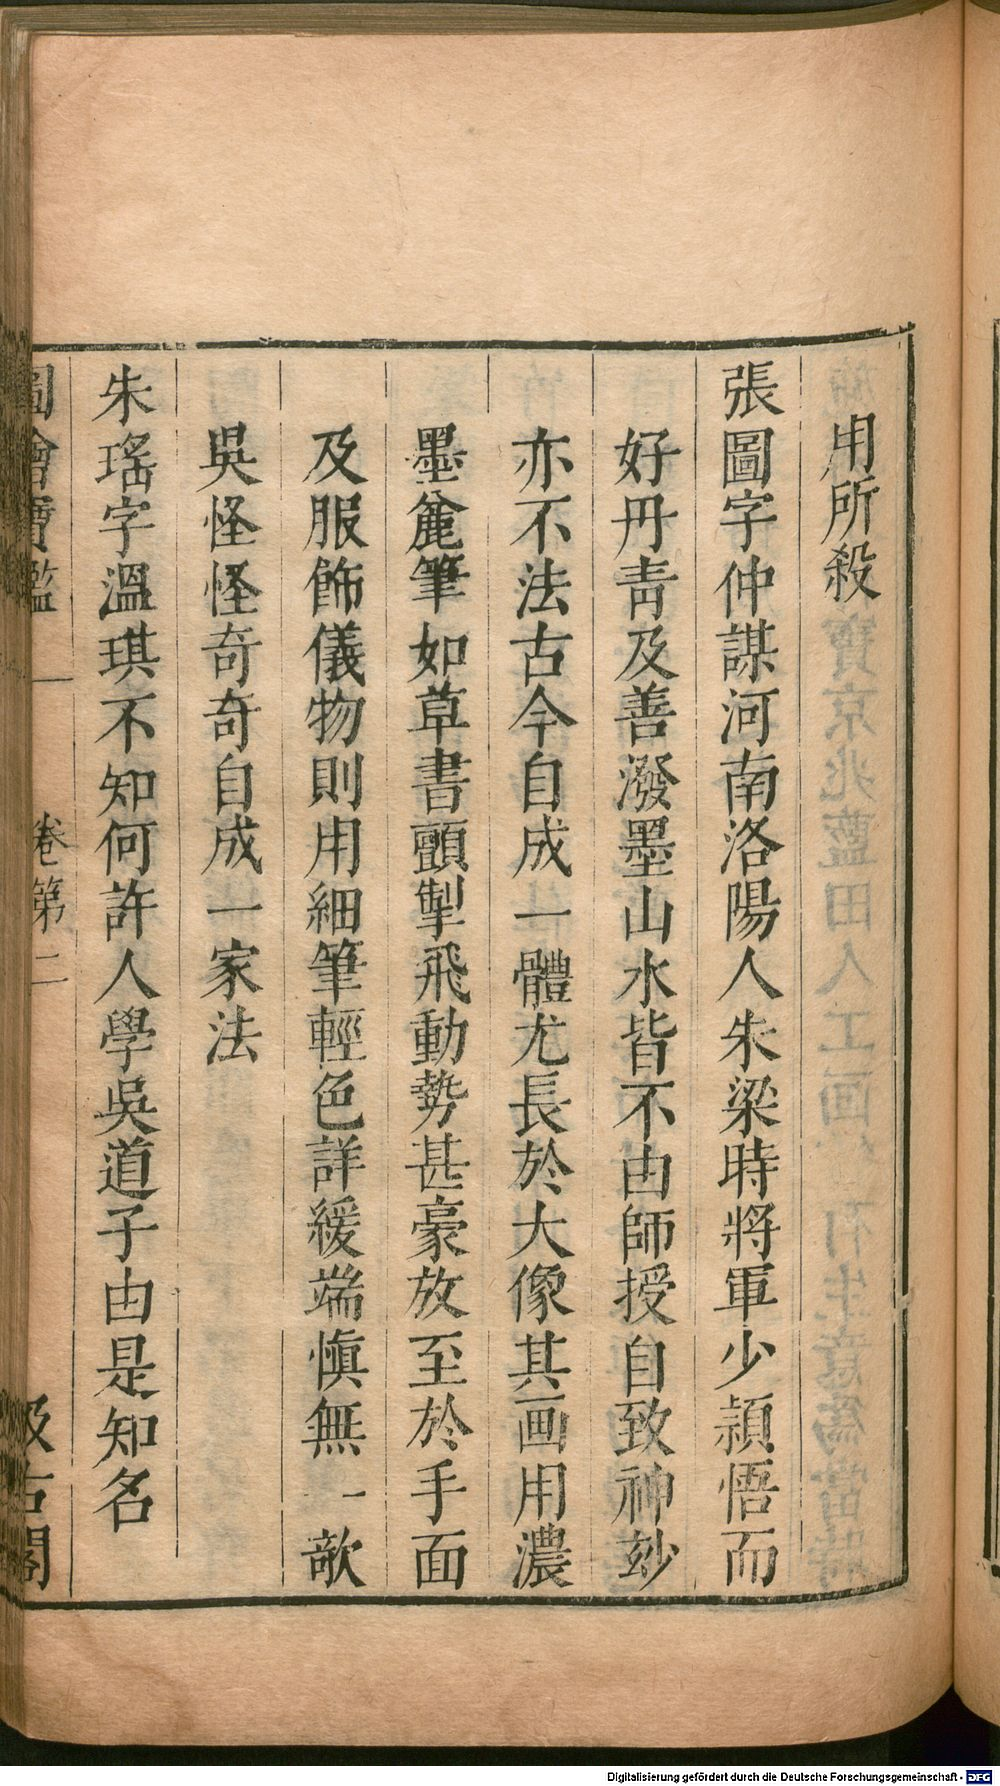 用所殺
張圖字仲謀河南洛陽人朱梁時將軍少穎悟而
好丹青及善潑墨山水皆不由師授自致神玅
亦不法古今自成一體尤長於大像其画用濃
墨麄筆如草書顫掣飛動勢甚豪放至於手面
及服飾儀物則用細筆輕色詳緩端慎無一欹
吳怪怪奇奇自成一家法
朱瑤字溫琪不知何許人學吳道子由是知名
圖繪寶鑑 卷第二 汲古閣
Digitalisierung gefördert durch die Deutsche Forschungsgemeinschaft - DFG